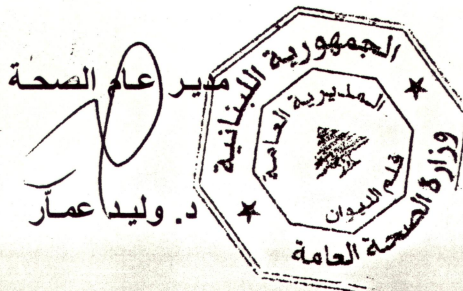 مدير عام الصحة
د. وليد عمّار
الجمهورية اللبنانية
وزارة الصحة العامة
المديرية العامة
قلم الديوان